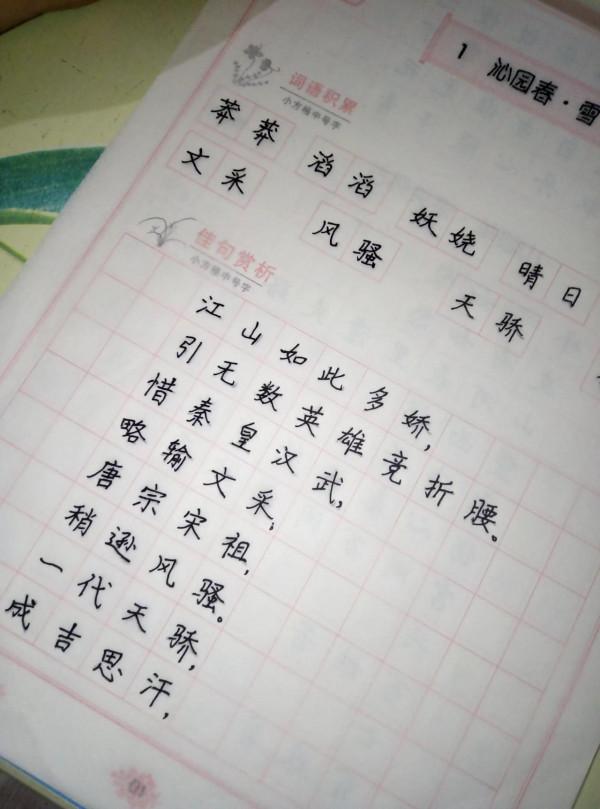 1 沁园春·雪
词语积累
小方格中号字
莽莽 滔滔 妖娆 晴日
文采 风骚 天骄
佳句赏析
小方格中号字
江山如此多娇,
引无数英雄竞折腰。
惜秦皇汉武,
略输文采;
唐宗宋祖,
稍逊风骚。
一代天骄,
成吉思汗,
01